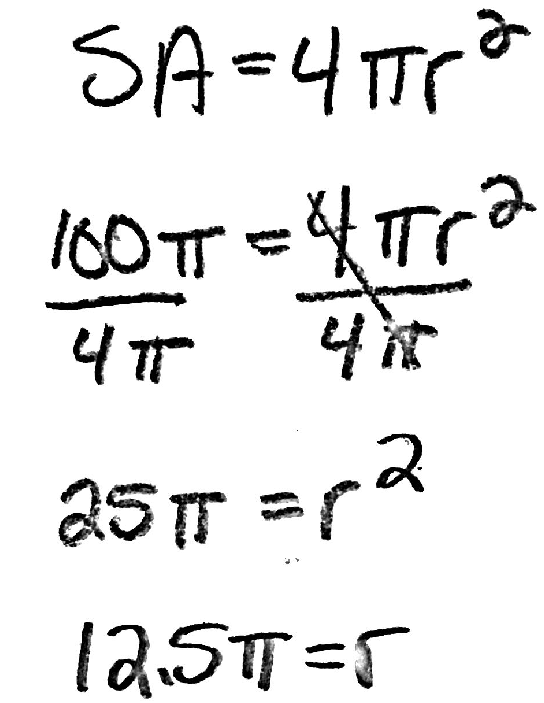 SA = 4πr²
100π = 4πr²
4π 4π
25π = r²
12.5π = r